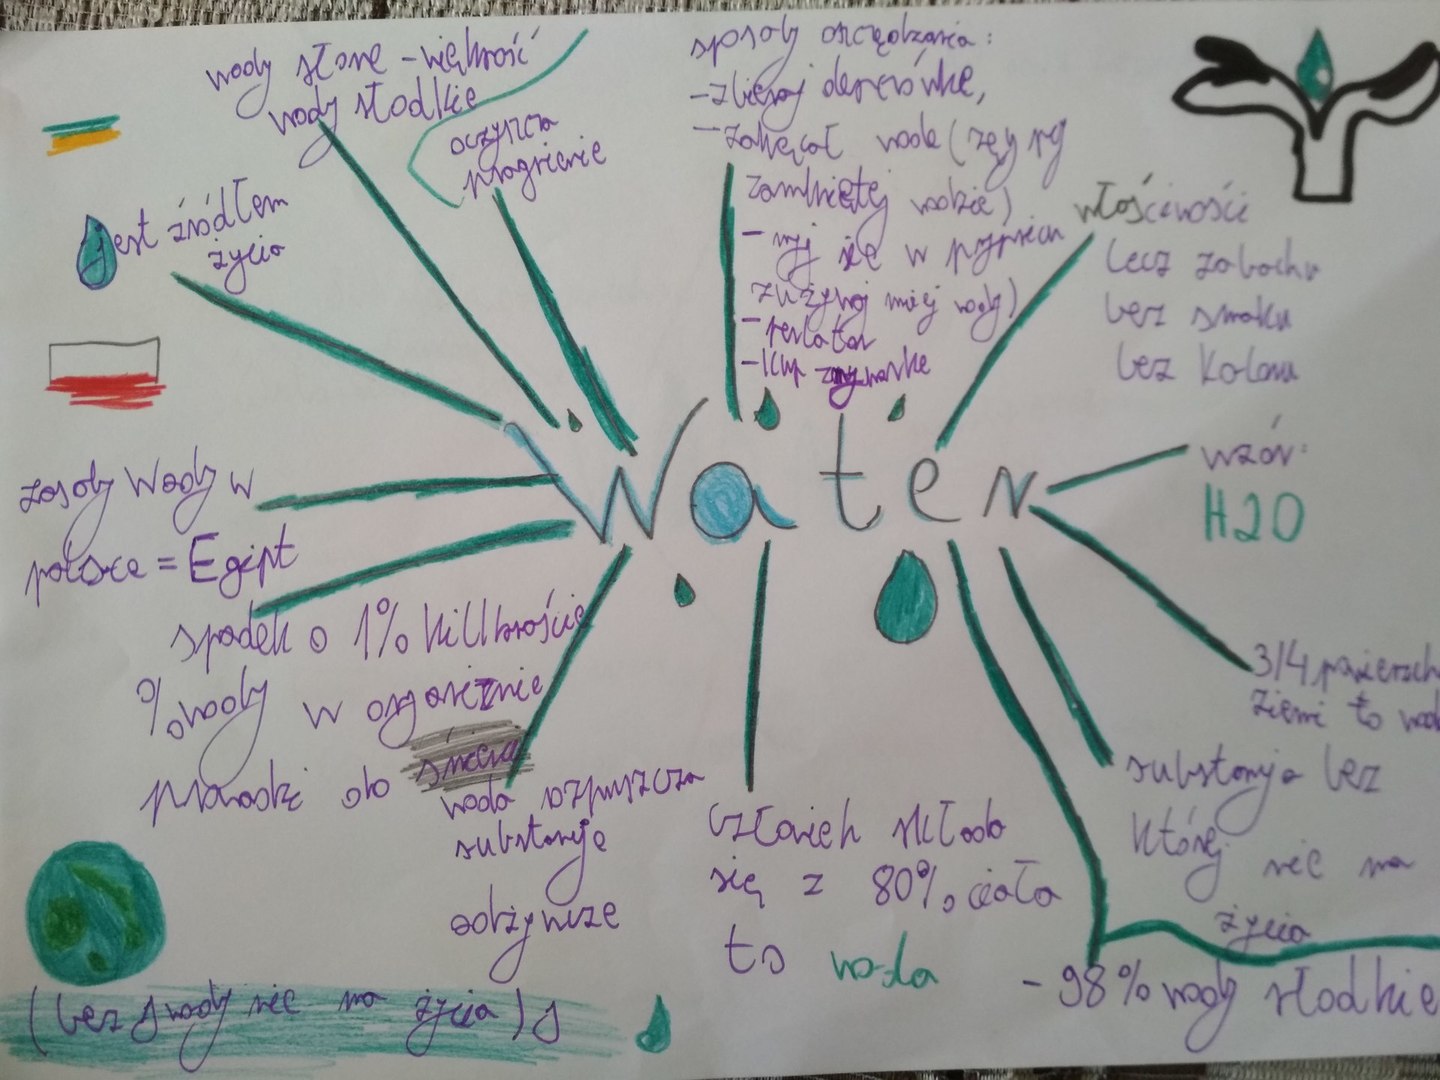 wody słone - większość
wody słodkie
oczyszcza
pragnienie
sposoby oszczędzania:
- zbieraj deszczówkę,
- zakręcać wodę (zęby myj
zamkniętej wodzie)
- myj się w prysznicu
zużywaj miej wody)
- perlator
- kup zmywarkę
właściwości
bez zabachu
bez smaku
bez koloru
jest źródłem
życia
Water
wzór:
H2O
zasoby Wody w
polsce = Egipt
spadek o 1% killkroście
% wody w organiźnie
prowadzi do
woda rozpuszcza
substancje
odżywcze
człowiek składa
się z 80% ciała
to woda
3/4 powierzch
ziemi to wod
substancja bez
której nie ma
życia
- 98% wody słodkie
(bez wody nie ma życia)